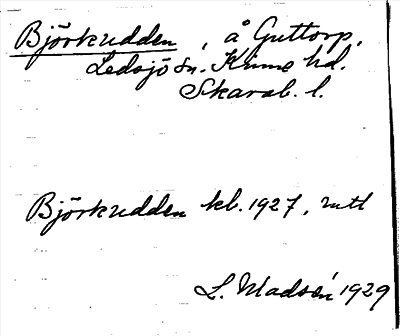 Björkudden, å Guttorp,
Ledsjö sn. Kinne hd.
Skarab. l.
Björkudden kb. 1927, rutt
L. Madsén 1929